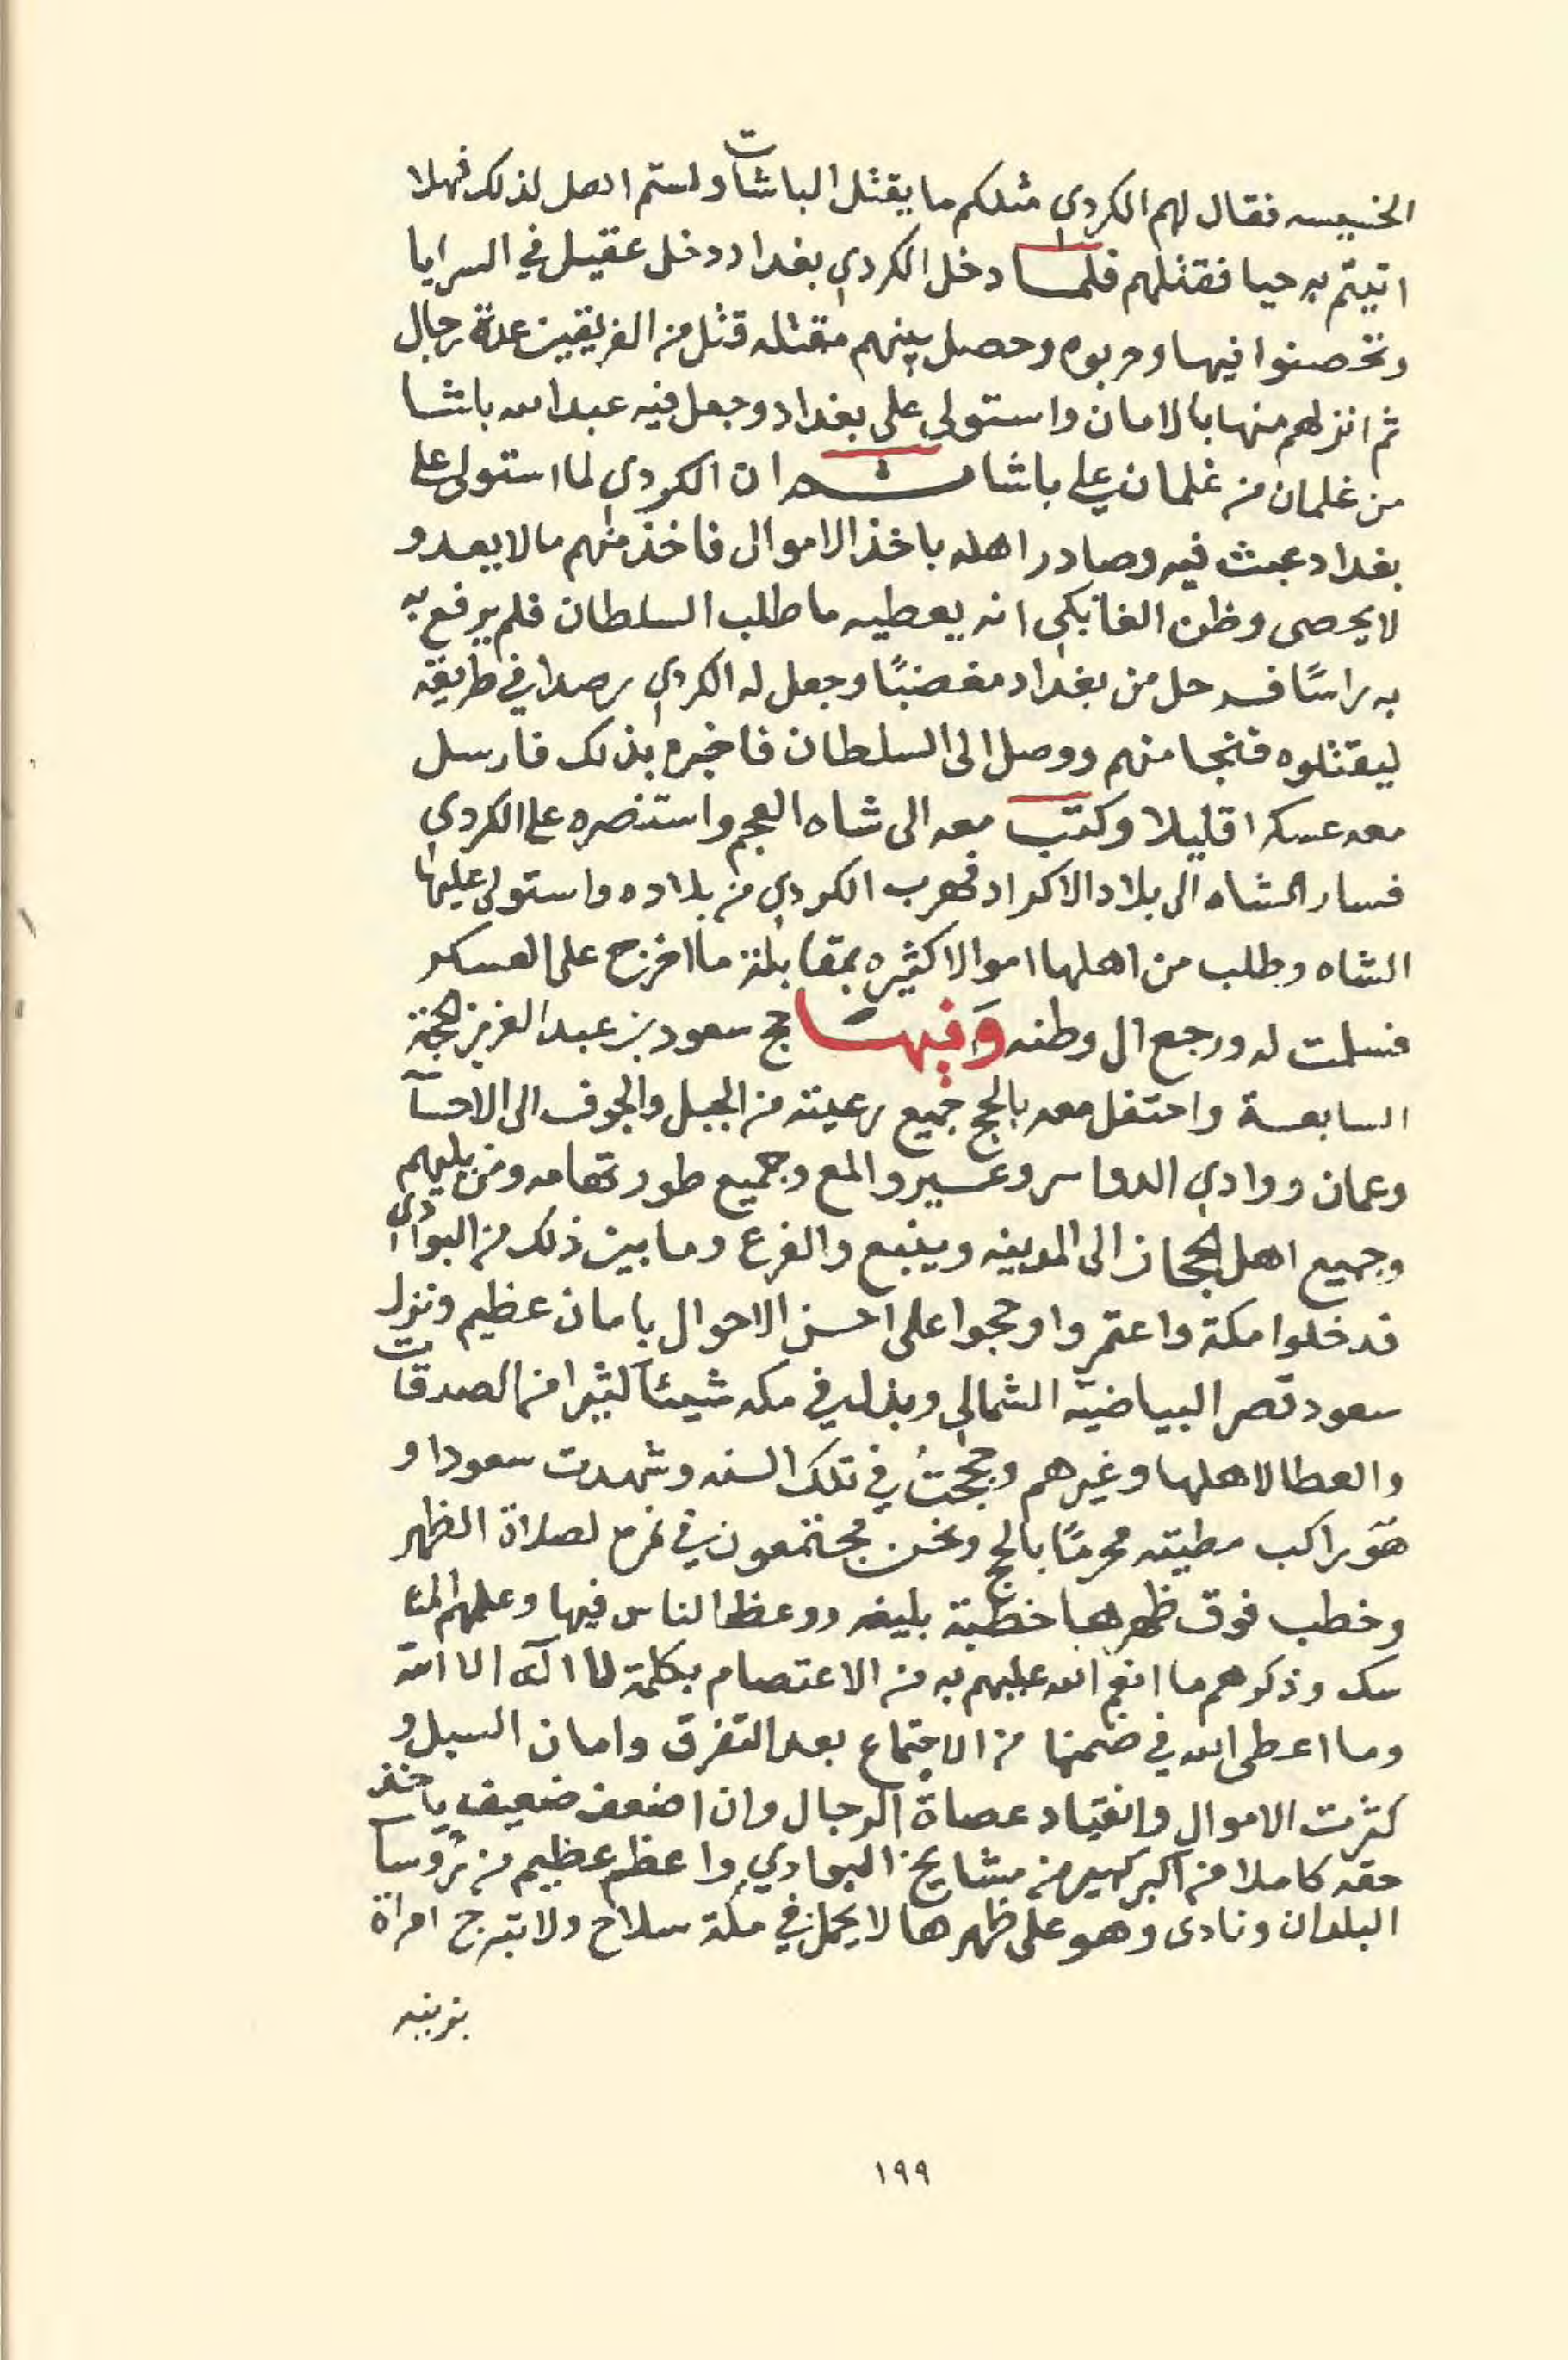 الخسيسه فقال لهم الكردي مثلكم ما يقتل الباشات ولستم اهل لذلك فهلا
اتيتم به حيا فقتلهم فلما دخل الكردي بغداد دخل عقيل في السرايا
وتحصنوا فيها وحربوه وحصل بينهم مقتله قتل من الفريقين عدة رجال
ثم انزلهم منها بالامان واستولى على بغداد وجعل فيه عبدالله باشا
من غلمان من غلمان علي باشا ثم ان الكردي لما استولى على
بغداد عبث فيه وصادر اهله باخذ الاموال فاخذ منهم مالا يعد و
لا يحصى وظن الفابكي انه يعطيه ما طلب السلطان فلم يرفع به
به راسًا فرحل من بغداد مغضبًا وجعل له الكردي رصدا في طريقه
ليقتلوه فنجا منهم ووصل الى السلطان فاخبره بذلك فارسل
معه عسكرا قليلا وكتب معه الى شاه العجم واستنصره على الكردي
فسار الشاه الى بلاد الاكراد فهرب الكردي من بلاده واستولى عليها
الشاه وطلب من اهلها اموالا كثيره بمقابلة ما اخرج على العسكر
فسلمت له ورجع الى وطنه وَفيهَا حج سعود بن عبدالعزيز الحجة
السابعة واحتفل معه بالحج جميع رعيته من الجبل والجوف الى الاحسآ
وعمان ووادي الدواسر وعسير والمع وجميع طور تهامه ومن يليهم
وجميع اهل الحجاز الى المدينه وينبع والفرع وما بين ذلك من البوادي
فدخلوا مكة واعتمروا وحجوا على احسن الاحوال بامان عظيم ونزل
سعود قصر البياضية الشمالي وبذل في مكه شيئآ كثيرا من الصدقات
والعطا لاهلها وغيرهم وحججتُ في تلك السنه وشهدت سعودا و
هوَ راكب مطيته محرمًا بالحج ونحن مجتمعون في نمرة لصلاة الظهر
وخطب فوق ظهرها خطبة بليغه ووعظ الناس فيها وعلمهم المنا
سك وذكرهم ما انعم الله عليهم به من الاعتصام بكلمة لا اله الا الله
وما اعطى الله في ضمنها من الاجتماع بعد التفرق وامان السبل و
كثرت الاموال وانقياد عصاة الرجال وان اضعف ضعيف ياخذ
حقه كاملا من اكبر كبير من مشايخ البوادي واعظم عظيم من رُوسآ
البلدان ونادى وهو على ظهرها لا يحمل في مكة سلاح ولا تبرج امراة
بزينه
١٩٩